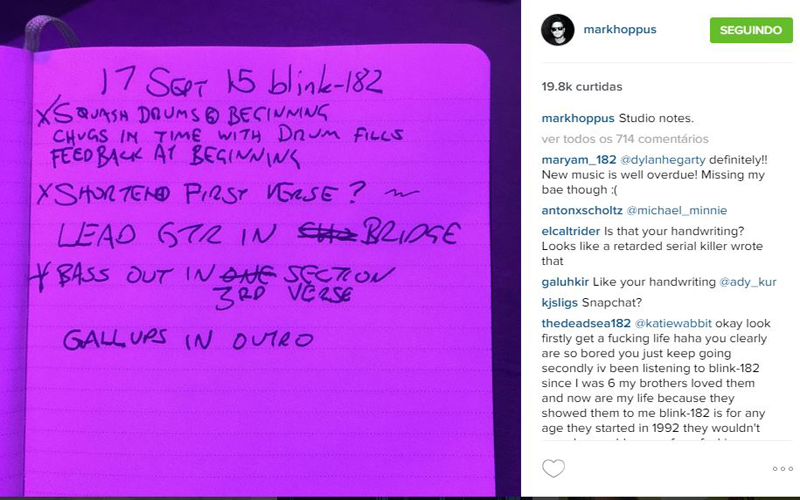 17 SEPT 15 blink-182
X SQUASH DRUMS @ BEGINNING
CHUGS IN TIME WITH DRUM FILLS
FEEDBACK AT BEGINNING
X SHORTEND FIRST VERSE? ~
LEAD GTR IN BRIDGE
X BASS OUT IN ONE SECTION
3RD VERSE
GALLUPS IN OUTRO
markhoppus
SEGUINDO
19.8k curtidas
markhoppus Studio notes.
ver todos os 714 comentários
maryam_182 @dylanhegarty definitely!!
New music is well overdue! Missing my
bae though :(
antonxscholtz @michael_minnie
elcaltrider Is that your handwriting?
Looks like a retarded serial killer wrote
that
galuhkir Like your handwriting @ady_kur
kjsligs Snapchat?
thedeadsea182 @katiewabbit okay look
firstly get a fucking life haha you clearly
are so bored you just keep going
secondly iv been listening to blink-182
since I was 6 my brothers loved them
and now are my life because they
showed them to me blink-182 is for any
age they started in 1992 they wouldn't